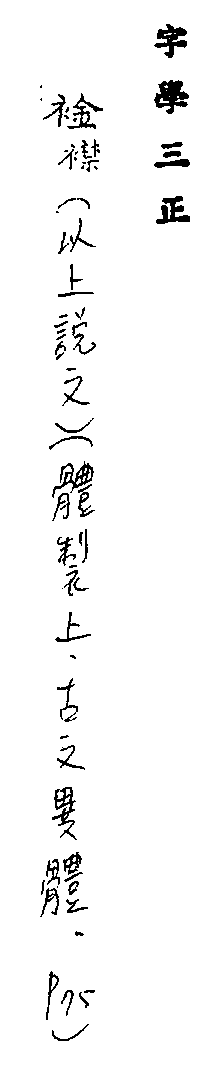 字學三正
䘳襟（以上説文）（體製上、古文異體、P75）